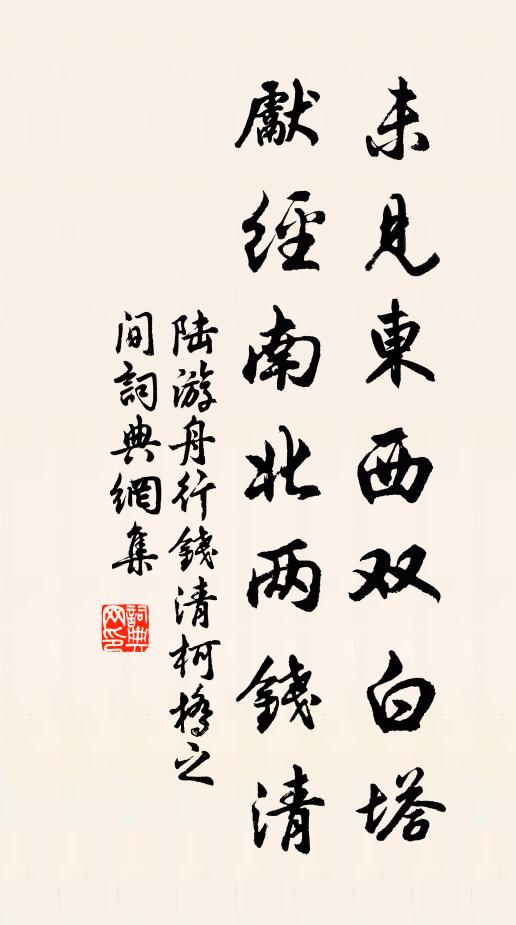 未見東西双白塔
獻經南北两錢清
陆游舟行錢清柯橋之
間詞典網集
詞典
网印